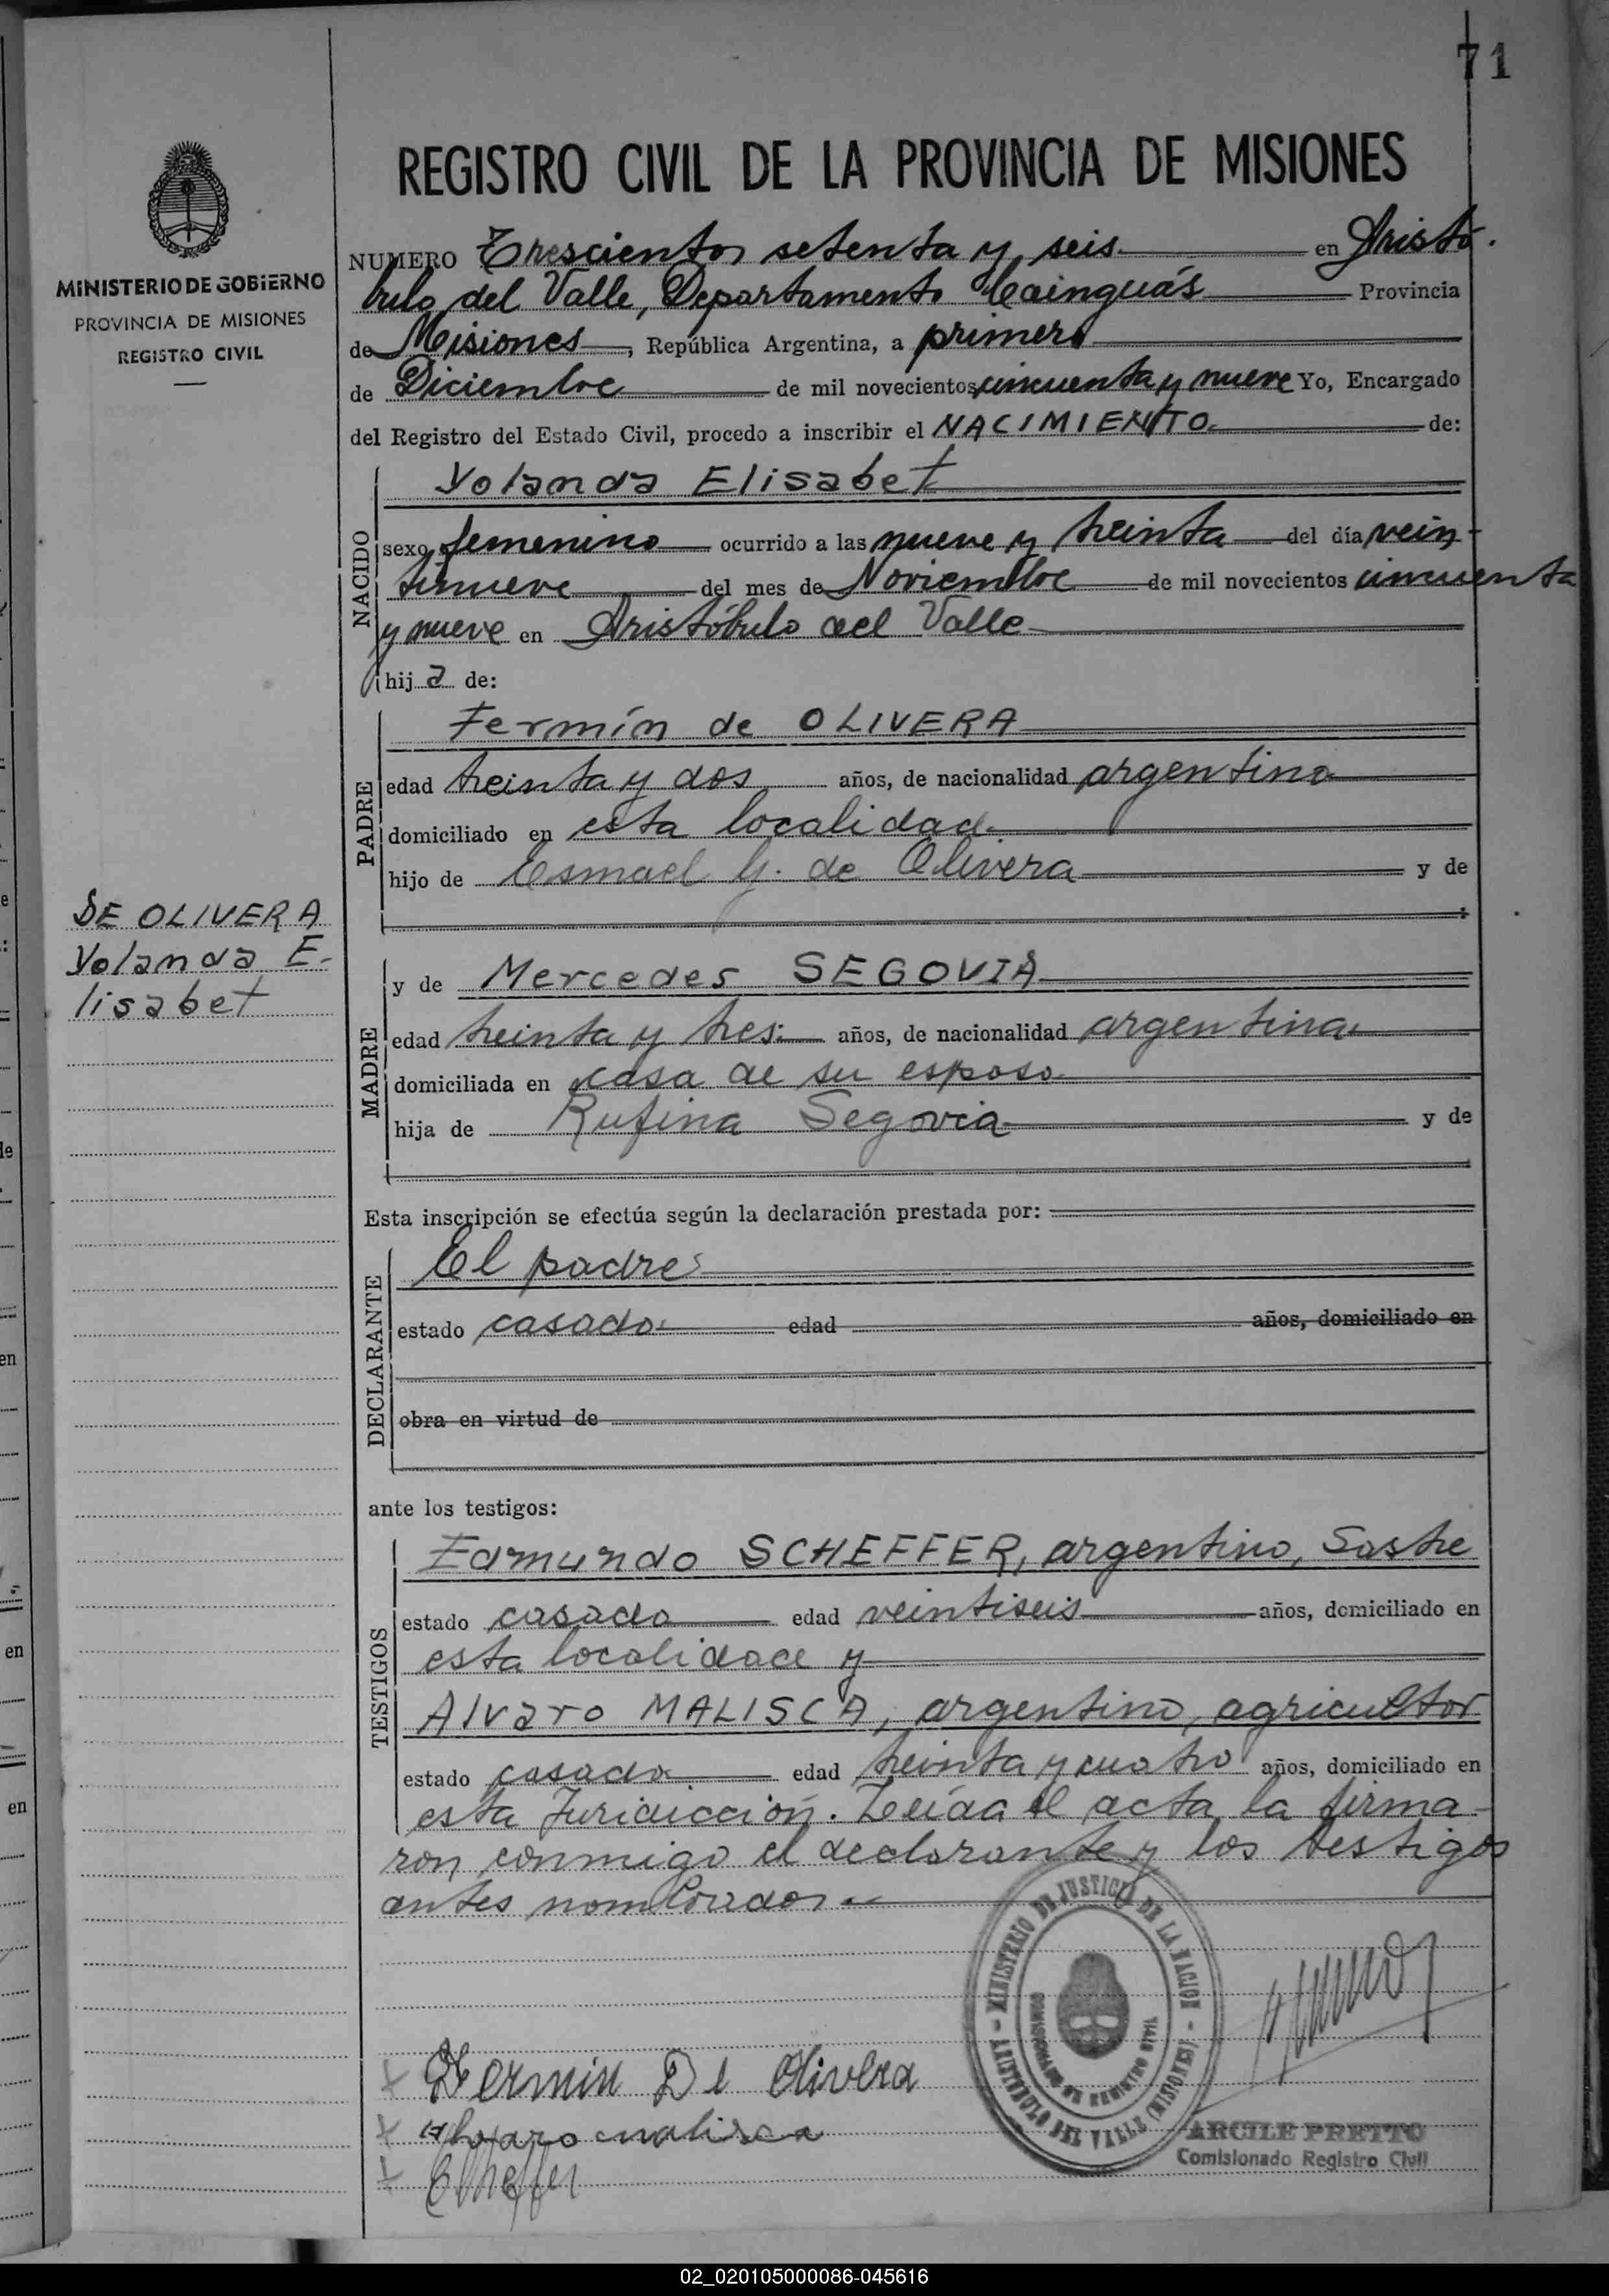 71
REGISTRO CIVIL DE LA PROVINCIA DE MISIONES
MINISTERIO DE GOBIERNO
PROVINCIA DE MISIONES
REGISTRO CIVIL
NUMERO Trescientos setenta y seis en Aristó
bulo del Valle, Departamento Cainguás Provincia
de Misiones, República Argentina, a primero
de Diciembre de mil novecientos cincuenta y nueve Yo, Encargado
del Registro del Estado Civil, procedo a inscribir el NACIMIENTO de:
NACIDO
Yolanda Elisabet
sexo femenino ocurrido a las nueve y treinta del día vein-
tinueve del mes de Noviembre de mil novecientos cincuenta
y nueve en Aristóbulo del Valle
hija de:
PADRE
Fermín de OLIVERA
edad treinta y dos años, de nacionalidad argentina
domiciliado en esta localidad
hijo de Esmael G. de Olivera y de
DE OLIVERA
Yolanda E-
lisabet
MADRE
y de Mercedes SEGOVIA
edad treinta y tres años, de nacionalidad argentina
domiciliada en casa de su esposo
hija de Rufina Segovia y de
Esta inscripción se efectúa según la declaración prestada por:
DECLARANTE
El padre
estado casado edad años, domiciliado en
obra en virtud de
ante los testigos:
TESTIGOS
Edmundo SCHEFFER, argentino, Sastre
estado casado edad veintiseis años, domiciliado en
esta localidad y
Alvaro MALISCA, argentino, agricultor
estado casado edad treinta y cuatro años, domiciliado en
esta Juridicción. Leída el acta la firma-
ron conmigo el declarante y los testigos
antes nombrados.
MINISTERIO DE JUSTICIA DE LA NACION - ARISTOBULO DEL VALLE (MISIONES) -
Fermin De Olivera
Alvaro malisca
EScheffer
ARCILE PRETTO
Comisionado Registro Civil
02_020105000086-045616